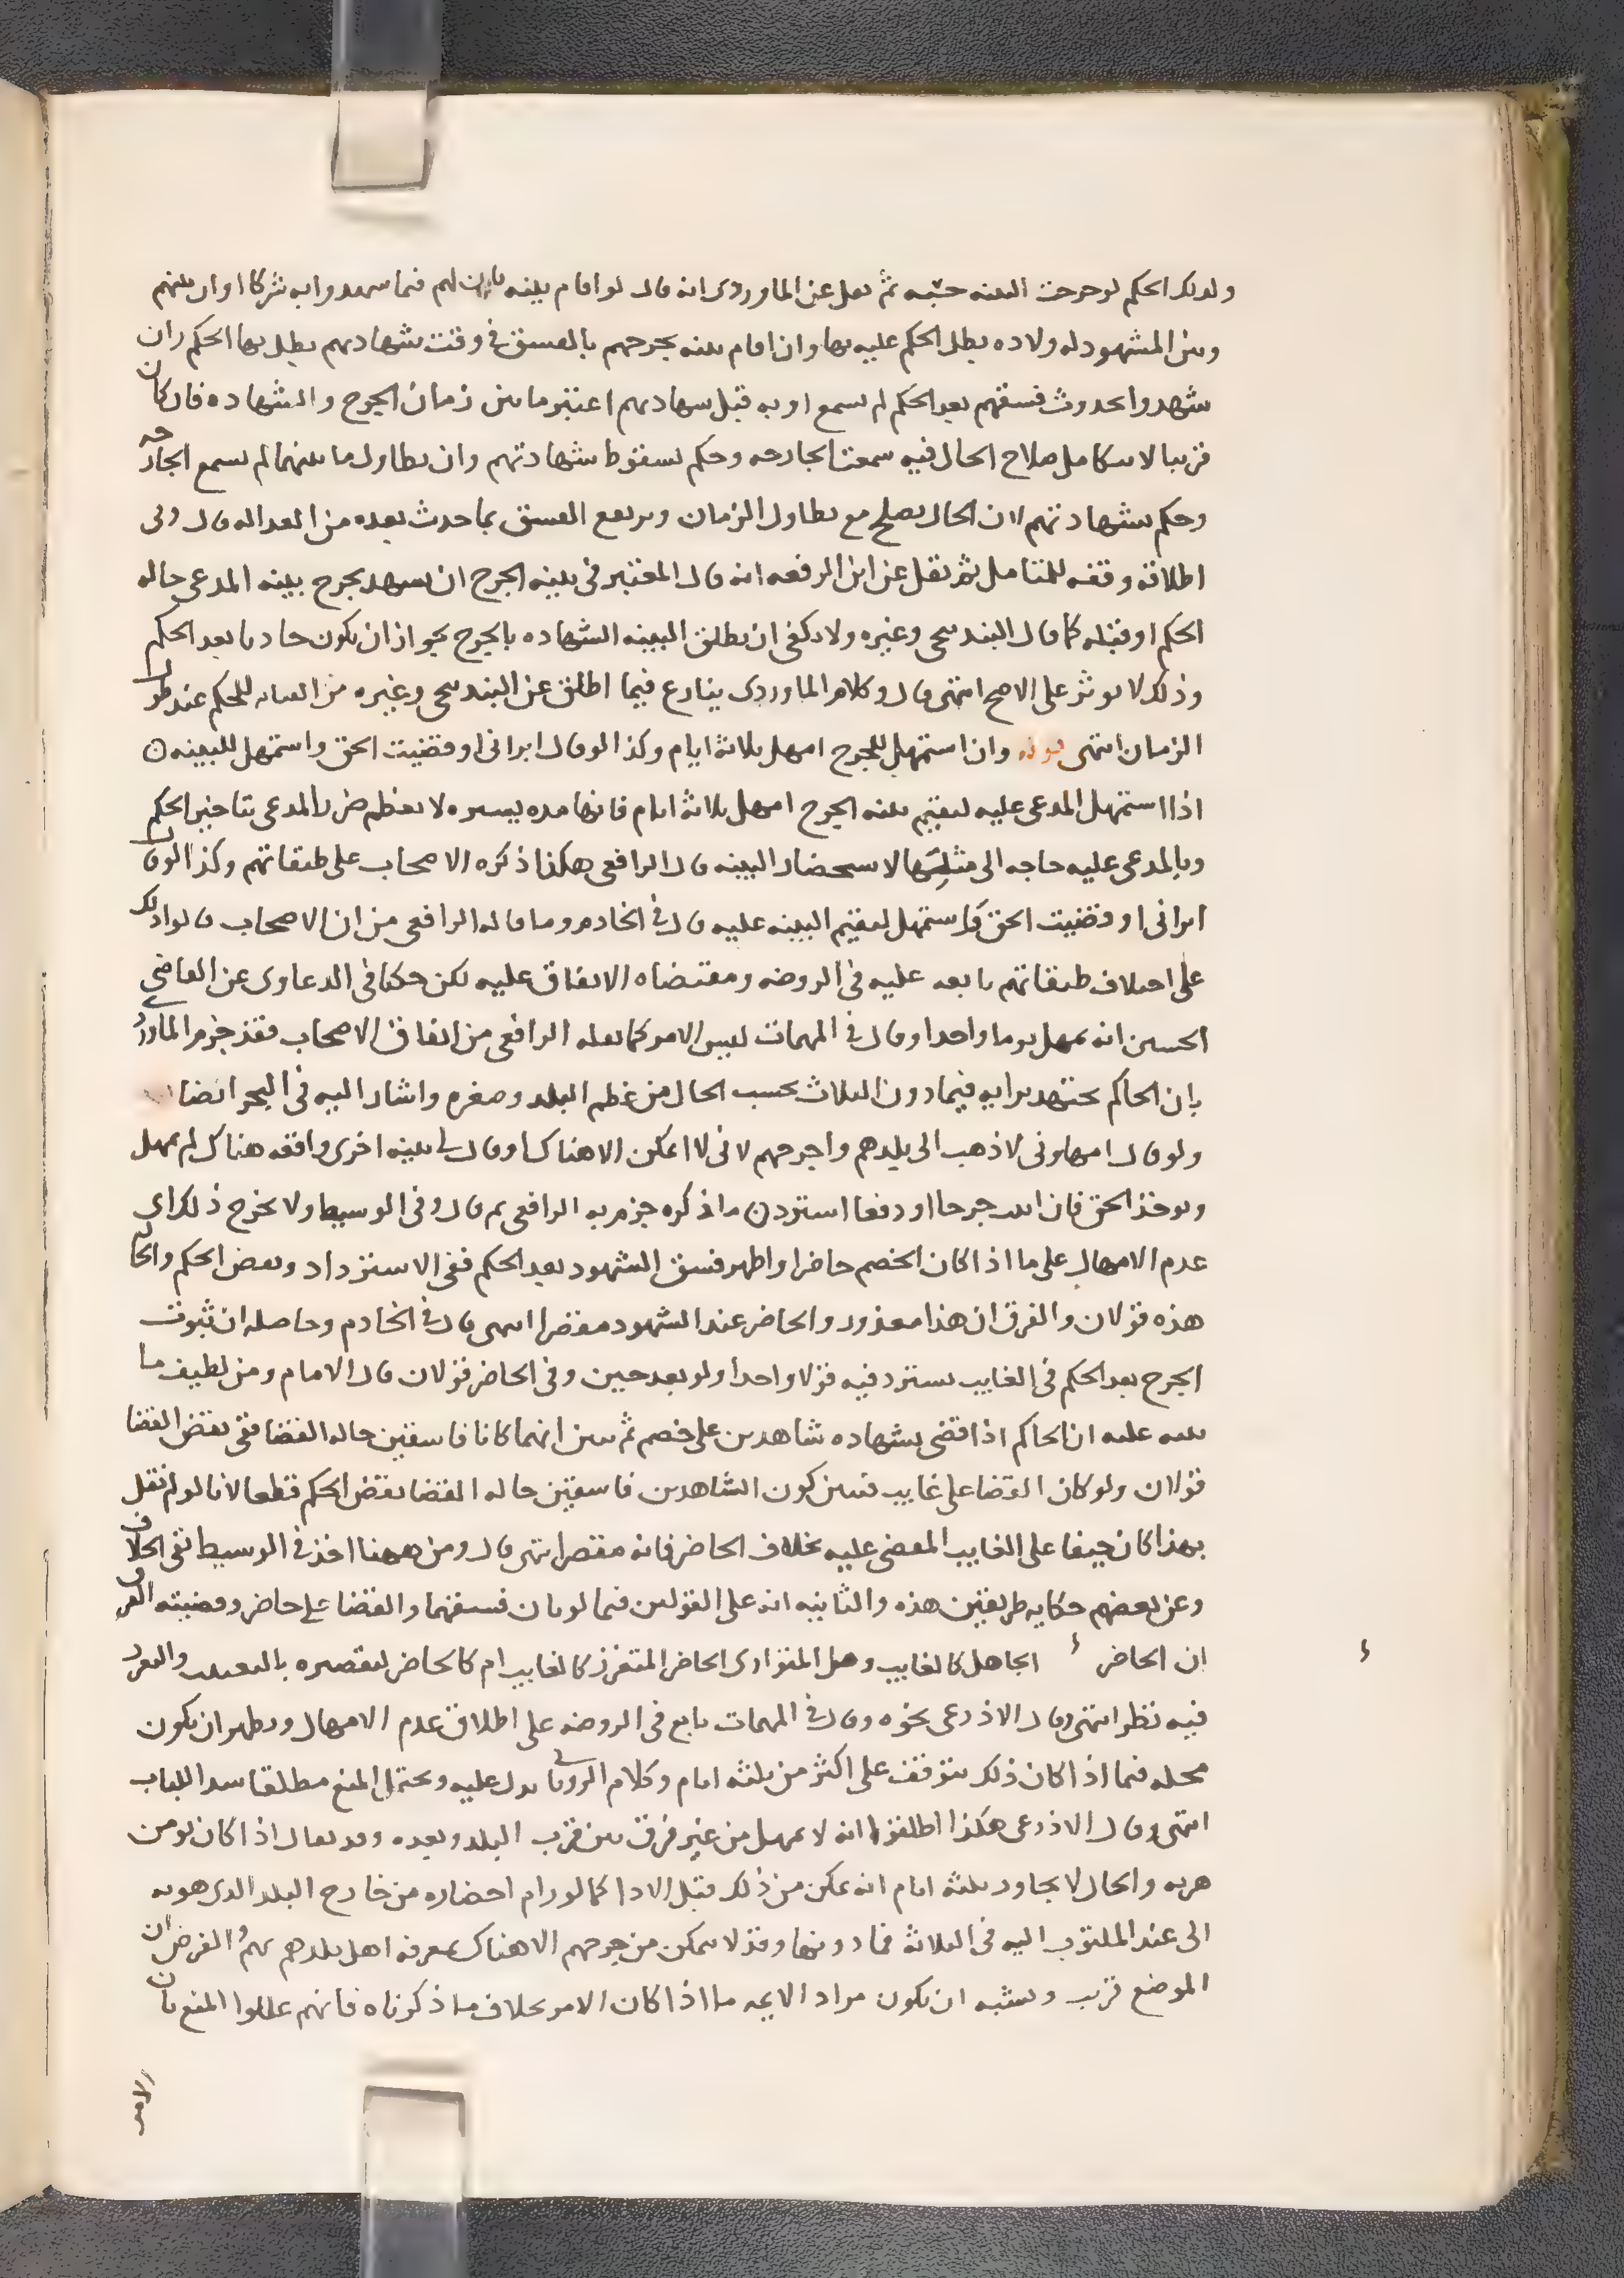 وكذلك الحكم لو جرحت البينه حسبه ثم نقل عن الماوردي انه قال لو اقام بينه بان لهم فيما شهدوا به شركا او ان بينهم
وبين المشهود له ولاده بطل الحكم عليه بها وان اقام بينه بجرحهم بالفسق في وقت شهادتهم بطل بها الحكم وان
شهدوا بحدوث فسقهم بعد الحكم لم يسمع او به قبل شهادتهم اعتبر ما بين زمان الجرح والشهاده فان كان
قريبا لا يتكامل صلاح الحال فيه سمعت الجارحه وحكم بسقوط شهادتهم وان تطاول ما بينهما لم يسمع الجارحه
وحكم بشهادتهم لان الحال يصلح مع تطاول الزمان ويرتفع الفسق بما حدث بعده من العداله قال وفي
اطلاقه وقفه للمتامل ثم نقل عن ابن الرفعه انه قال المعتبر في بينه الجرح ان يشهد بجرح بينه المدعي حاله
الحكم او قبله كما قال البندنيجي وغيره ولا يكفي ان يطلق البينه الشهاده بالجرح لجواز ان يكون حادثا بعد الحكم
وذلك لا يوثر على الاصح انتهى قال وكلام الماوردي ينازع فيما اطلق عن البندنيجي وغيره من للحكم عند طول
الزمان انتهى قوله وان استمهل للجرح امهل ثلاثة ايام وكذا لو قال ابراني او قضيت الحق واستمهل للبينه ن
اذا استمهل المدعى عليه ليقيم بينه الجرح امهل ثلاثة ايام فانها مده يسيره لا يعظم ضرر المدعي بتاخير الحكم
وبالمدعى عليه حاجه الى مثلها لاستحضار البينه قال الرافعي هكذا ذكره الاصحاب على طبقاتهم وكذا لو قال
ابراني او قضيت الحق واستمهل ليقيم البينه عليه قال في الخادم وما قاله الرافعي من ان الاصحاب قالوا ذلك
على اختلاف طبقاتهم تابعه عليه في الروضه ومقتضاه الاتفاق عليه لكن حكيا في الدعاوى عن القاضي
الحسين انه يمهل يوما واحدا وقال في المهمات ليس الامر كما نقله الرافعي من اتفاق الاصحاب فقد جزم الماوردي
بان الحاكم يجتهد برايه فيما دون الثلاث بحسب الحال من عظم البلد وصغره واشار اليه في البحر ايضا
ولو قال امهلوني لاذهب الى بلدهم واجرحهم لاني لا اتمكن الا هناك او قال لي بينه اخرى واقفه هناك لم يمهل
ويوخذ الحق فان اثبت جرحا او دفعا استرد ن ما ذكره جزم به الرافعي ثم قال وفي الوسيط ولا يخرج ذلك اي
عدم الامهال على ما اذا كان الخصم حاضرا واظهر فسق الشهود بعد الحكم ففي الاسترداد ونقض الحكم والحاله
هذه قولان والفرق ان هذا معذور والحاضر عند الشهود مقصرا انتهى قال في الخادم وحاصله ان ثبوت
الجرح بعد الحكم في الغايب يسترد فيه قولا واحدا ولو بعد حين وفي الحاضر قولان قال الامام ومن لطيف ما
ننبه عليه ان الحاكم اذا قضى بشهاده شاهدين على خصم ثم تبين انهما كانا فاسقين حاله القضا ففي نقض القضا
قولان ولو كان القضا على غايب فتبين كون الشاهدين فاسقين حاله القضا نقض الحكم قطعا لانا لو لم نقل
بهذا كان حيفا على الغايب المقضي عليه بخلاف الحاضر فانه مقصر انتهى قال ومن ههنا اخذ في الوسيط نفي الخلاف
وعن بعضهم حكايه طريقين هذه والثانيه انه على القولين فيما لو بان فسقهما والقضا على حاضر وقضيته الفرق
ان الحاضر الجاهل كالغايب وهل المتواري الحاضر المتعزز كالغايب ام كالحاضر لتقصيره والتعزز
فيه نظر انتهى وقال الاذرعي نحوه وقال في المهمات تابع في الروضه على اطلاق عدم الامهال ويظهر ان يكون
محله فيما اذا كان ذلك يتوقف على اكثر من ثلثه ايام وكلام الروياني يدل عليه ويحتمل المنع مطلقا سدا للباب
انتهى وقال الاذرعي هكذا اطلقوا انه لا يمهل من غير فرق بين قرب البلد وبعده وقد يقال اذا كان يومن
هربه والحال لا يجاوز ثلثه ايام انه يمكن من ذلك قبل الادا كما لو رام احضاره من خارج البلد الذي هو به
الى عند المكتوب اليه في الثلاثه فما دونها وقد لا يتمكن من جرحهم الا هناك لمعرفه اهل بلدهم بهم والفرض ان
الموضع قريب ويشبه ان يكون مراد الايمه ما اذا كان الامر بخلاف ما ذكرناه فانهم عللوا المنع بان
الامر